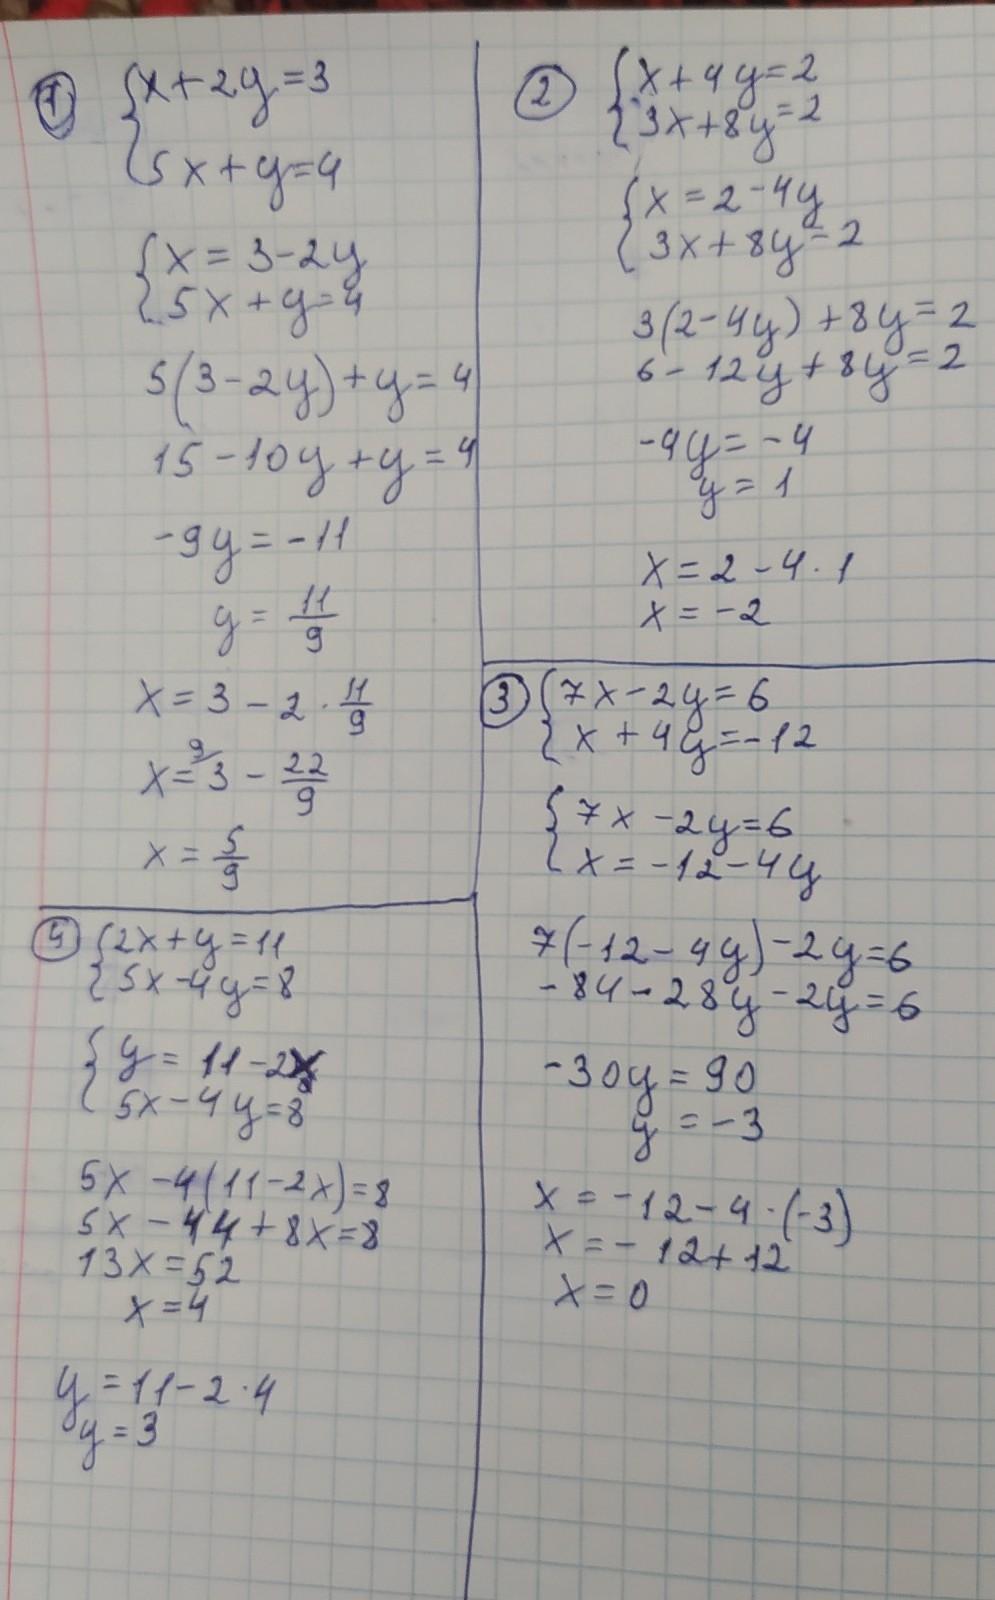 1
{x+2y=3
5x+y=4
{x=3-2y
5x+y=4
5(3-2y)+y=4
15-10y+y=4
-9y=-11
y=11/9
x=3-2·11/9
x=⁹⁄3-22/9
x=5/9
2
{x+4y=2
3x+8y=2
{x=2-4y
3x+8y=2
3(2-4y)+8y=2
6-12y+8y=2
-4y=-4
y=1
x=2-4·1
x=-2
3
{7x-2y=6
x+4y=-12
{7x-2y=6
x=-12-4y
7(-12-4y)-2y=6
-84-28y-2y=6
-30y=90
y=-3
x=-12-4·(-3)
x=-12+12
x=0
4
{2x+y=11
5x-4y=8
{y=11-2x
5x-4y=8
5x-4(11-2x)=8
5x-44+8x=8
13x=52
x=4
y=11-2·4
y=3